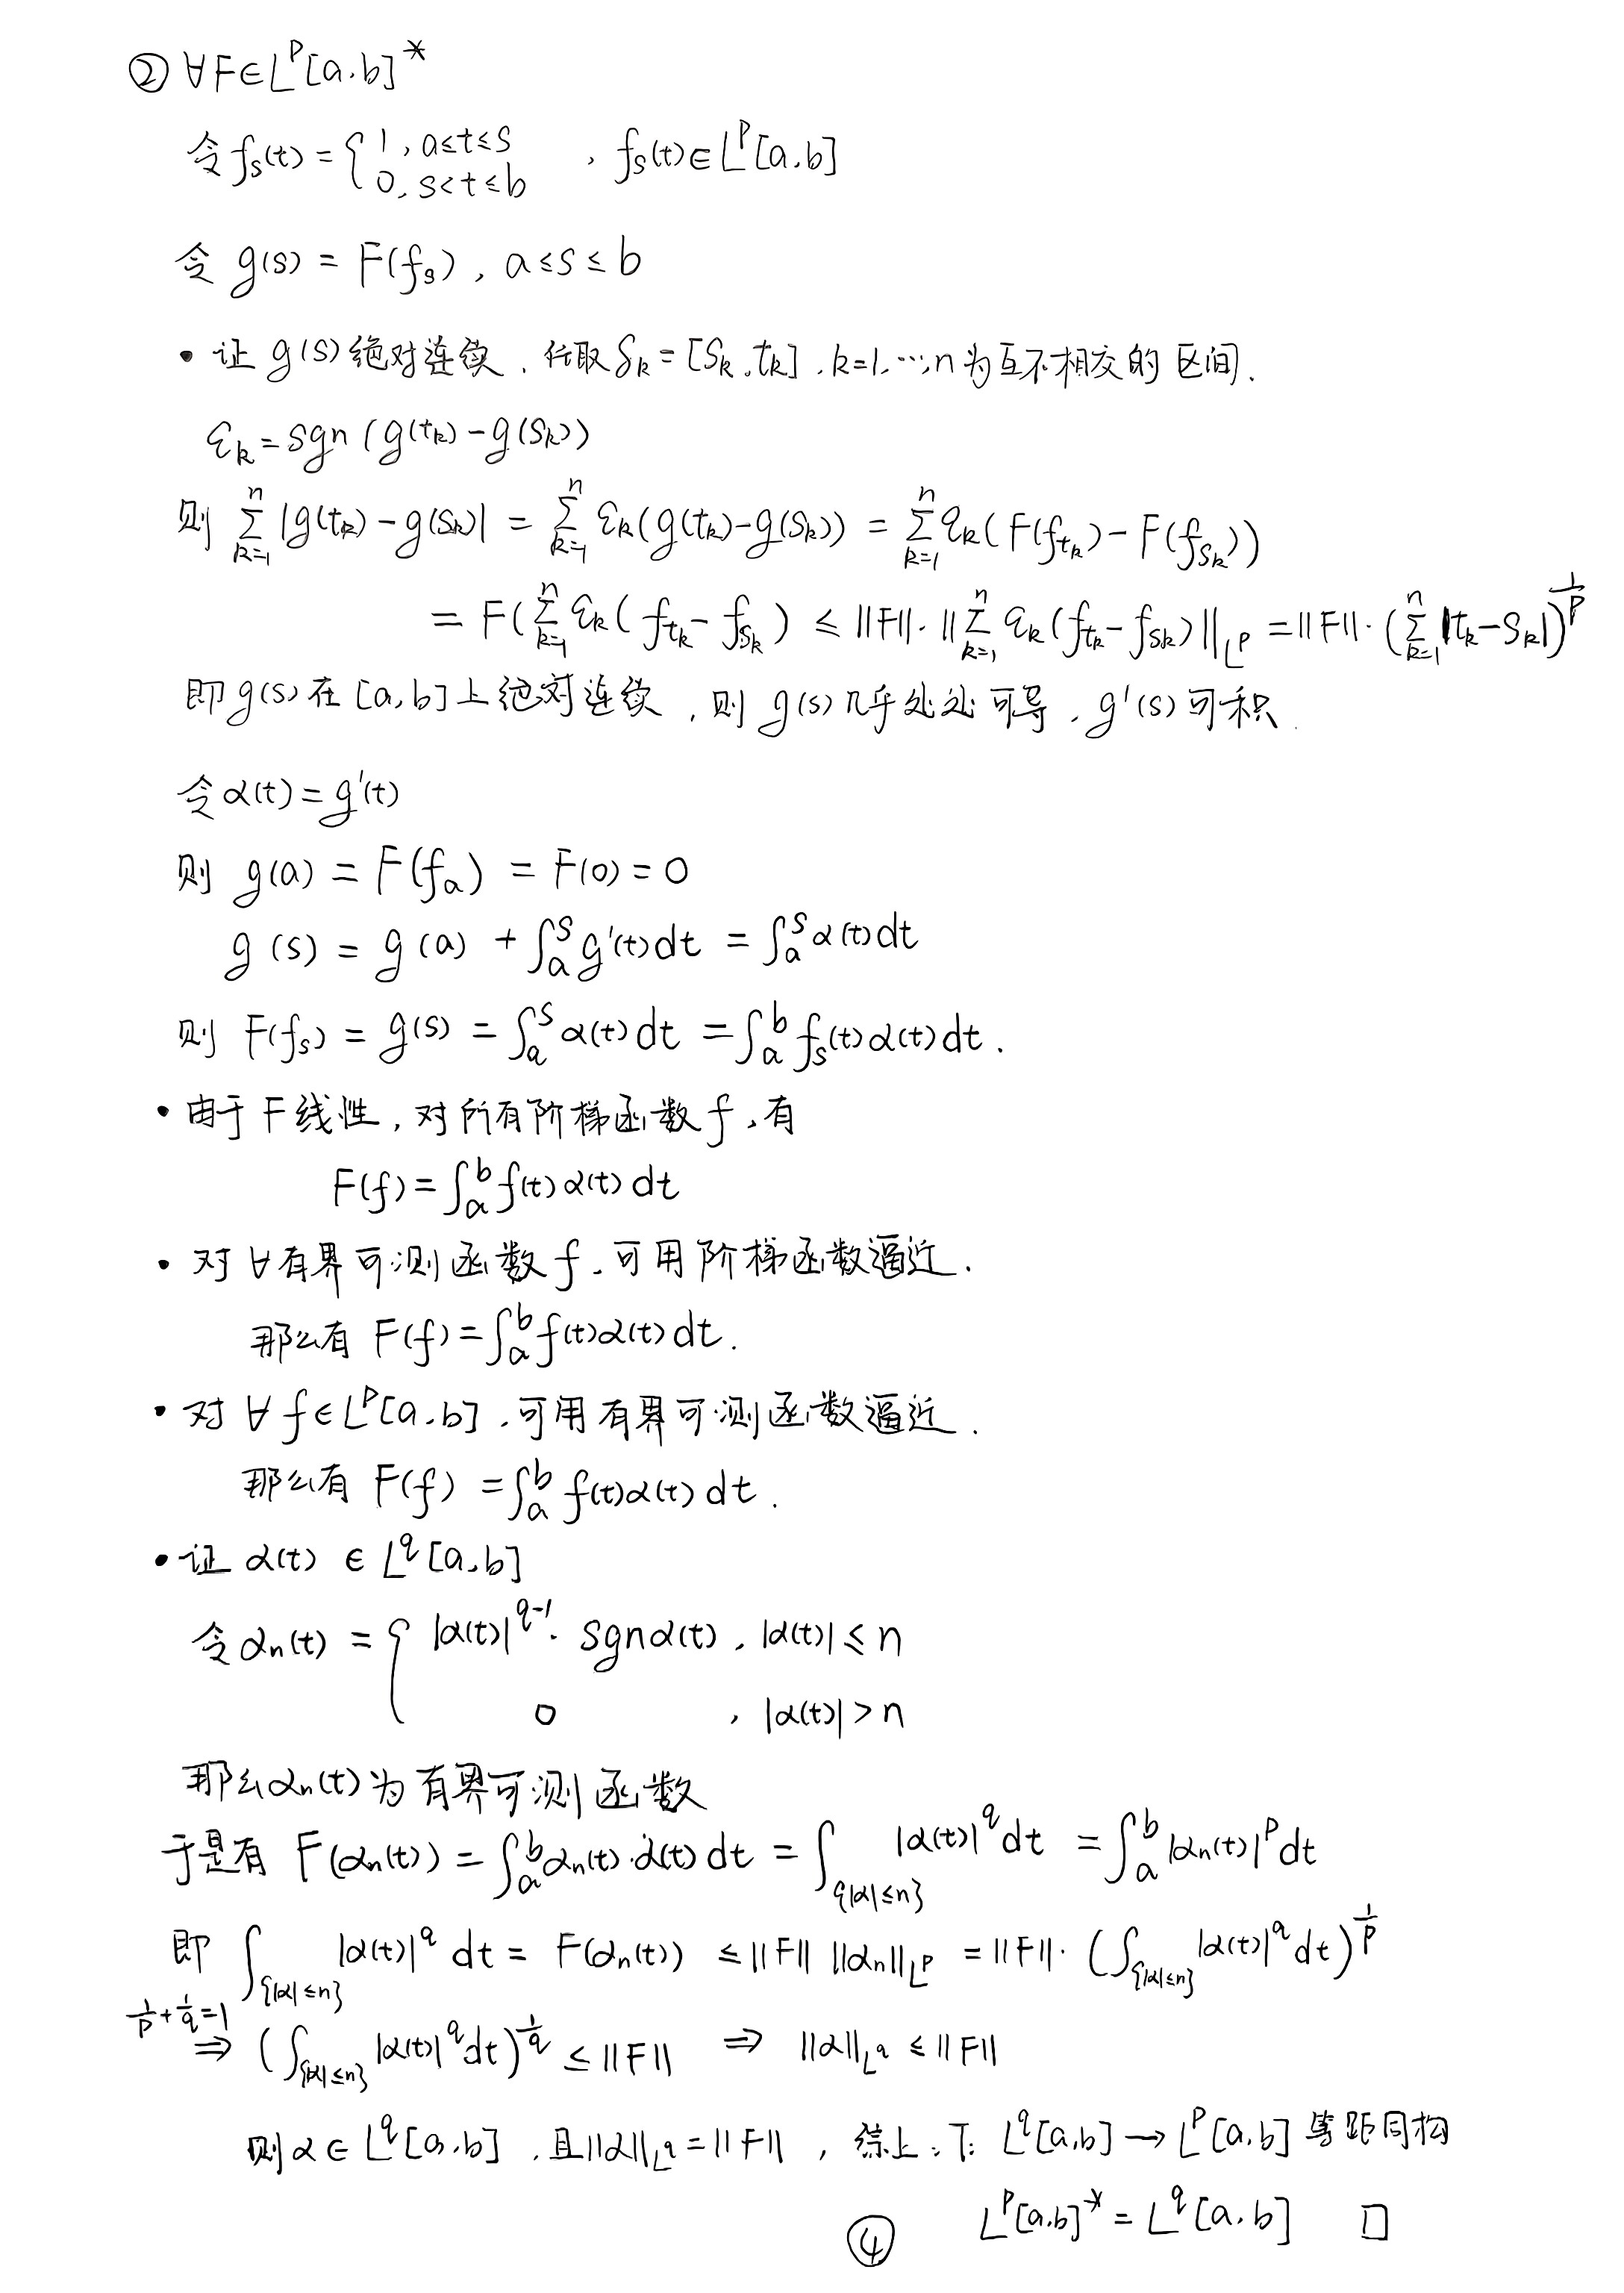 ② ∀F∈L^p[a,b]^*
令 f_s(t) = { 1, a≤t≤s ; 0, s<t≤b , f_s(t)∈L^p[a,b]
令 g(s) = F(f_s), a≤s≤b
• 证 g(s) 绝对连续, 任取 δ_k = [s_k, t_k], k=1,…,n 为互不相交的 区间.
ε_k = sgn (g(t_k) - g(s_k))
则 ∑_{k=1}^n |g(t_k) - g(s_k)| = ∑_{k=1}^n ε_k(g(t_k) - g(s_k)) = ∑_{k=1}^n ε_k(F(f_{t_k}) - F(f_{s_k}))
= F(∑_{k=1}^n ε_k(f_{t_k} - f_{s_k}) ≤ ||F||·||∑_{k=1}^n ε_k(f_{t_k} - f_{s_k})||_{L^p} = ||F||·(∑_{k=1}^n |t_k - s_k|)^{1/p}
即 g(s) 在 [a,b] 上绝对连续, 则 g(s) 几乎处处可导, g'(s) 可积.
令 α(t) = g'(t)
则 g(a) = F(f_a) = F(0) = 0
g(s) = g(a) + ∫_a^s g'(t)dt = ∫_a^s α(t)dt
则 F(f_s) = g(s) = ∫_a^s α(t)dt = ∫_a^b f_s(t)α(t)dt.
• 由于 F 线性, 对所有阶梯函数 f, 有
F(f) = ∫_a^b f(t)α(t)dt
• 对 ∀ 有界可测函数 f, 可用阶梯函数逼近.
那么有 F(f) = ∫_a^b f(t)α(t)dt.
• 对 ∀ f∈L^p[a,b], 可用有界可测函数逼近.
那么有 F(f) = ∫_a^b f(t)α(t)dt.
• 证 α(t) ∈ L^q[a,b]
令 α_n(t) = { |α(t)|^{q-1}· sgnα(t), |α(t)| ≤ n
0 , |α(t)| > n
那么 α_n(t) 为有界可测函数
于是有 F(α_n(t)) = ∫_a^b α_n(t)·α(t)dt = ∫_{{|α|≤n}} |α(t)|^q dt = ∫_a^b |α_n(t)|^p dt
即 ∫_{{|α|≤n}} |α(t)|^q dt = F(α_n(t)) ≤ ||F|| ||α_n||_{L^p} = ||F||·(∫_{{|α|≤n}} |α(t)|^q dt)^{1/p}
1/p + 1/q = 1
⇒ (∫_{{|α|≤n}} |α(t)|^q dt)^{1/q} ≤ ||F|| ⇒ ||α||_{L^q} ≤ ||F||
则 α∈L^q[a,b], 且 ||α||_{L^q} = ||F||, 综上: T: L^q[a,b] → L^p[a,b] 等距同构
L^p[a,b]^* = L^q[a,b] □
④